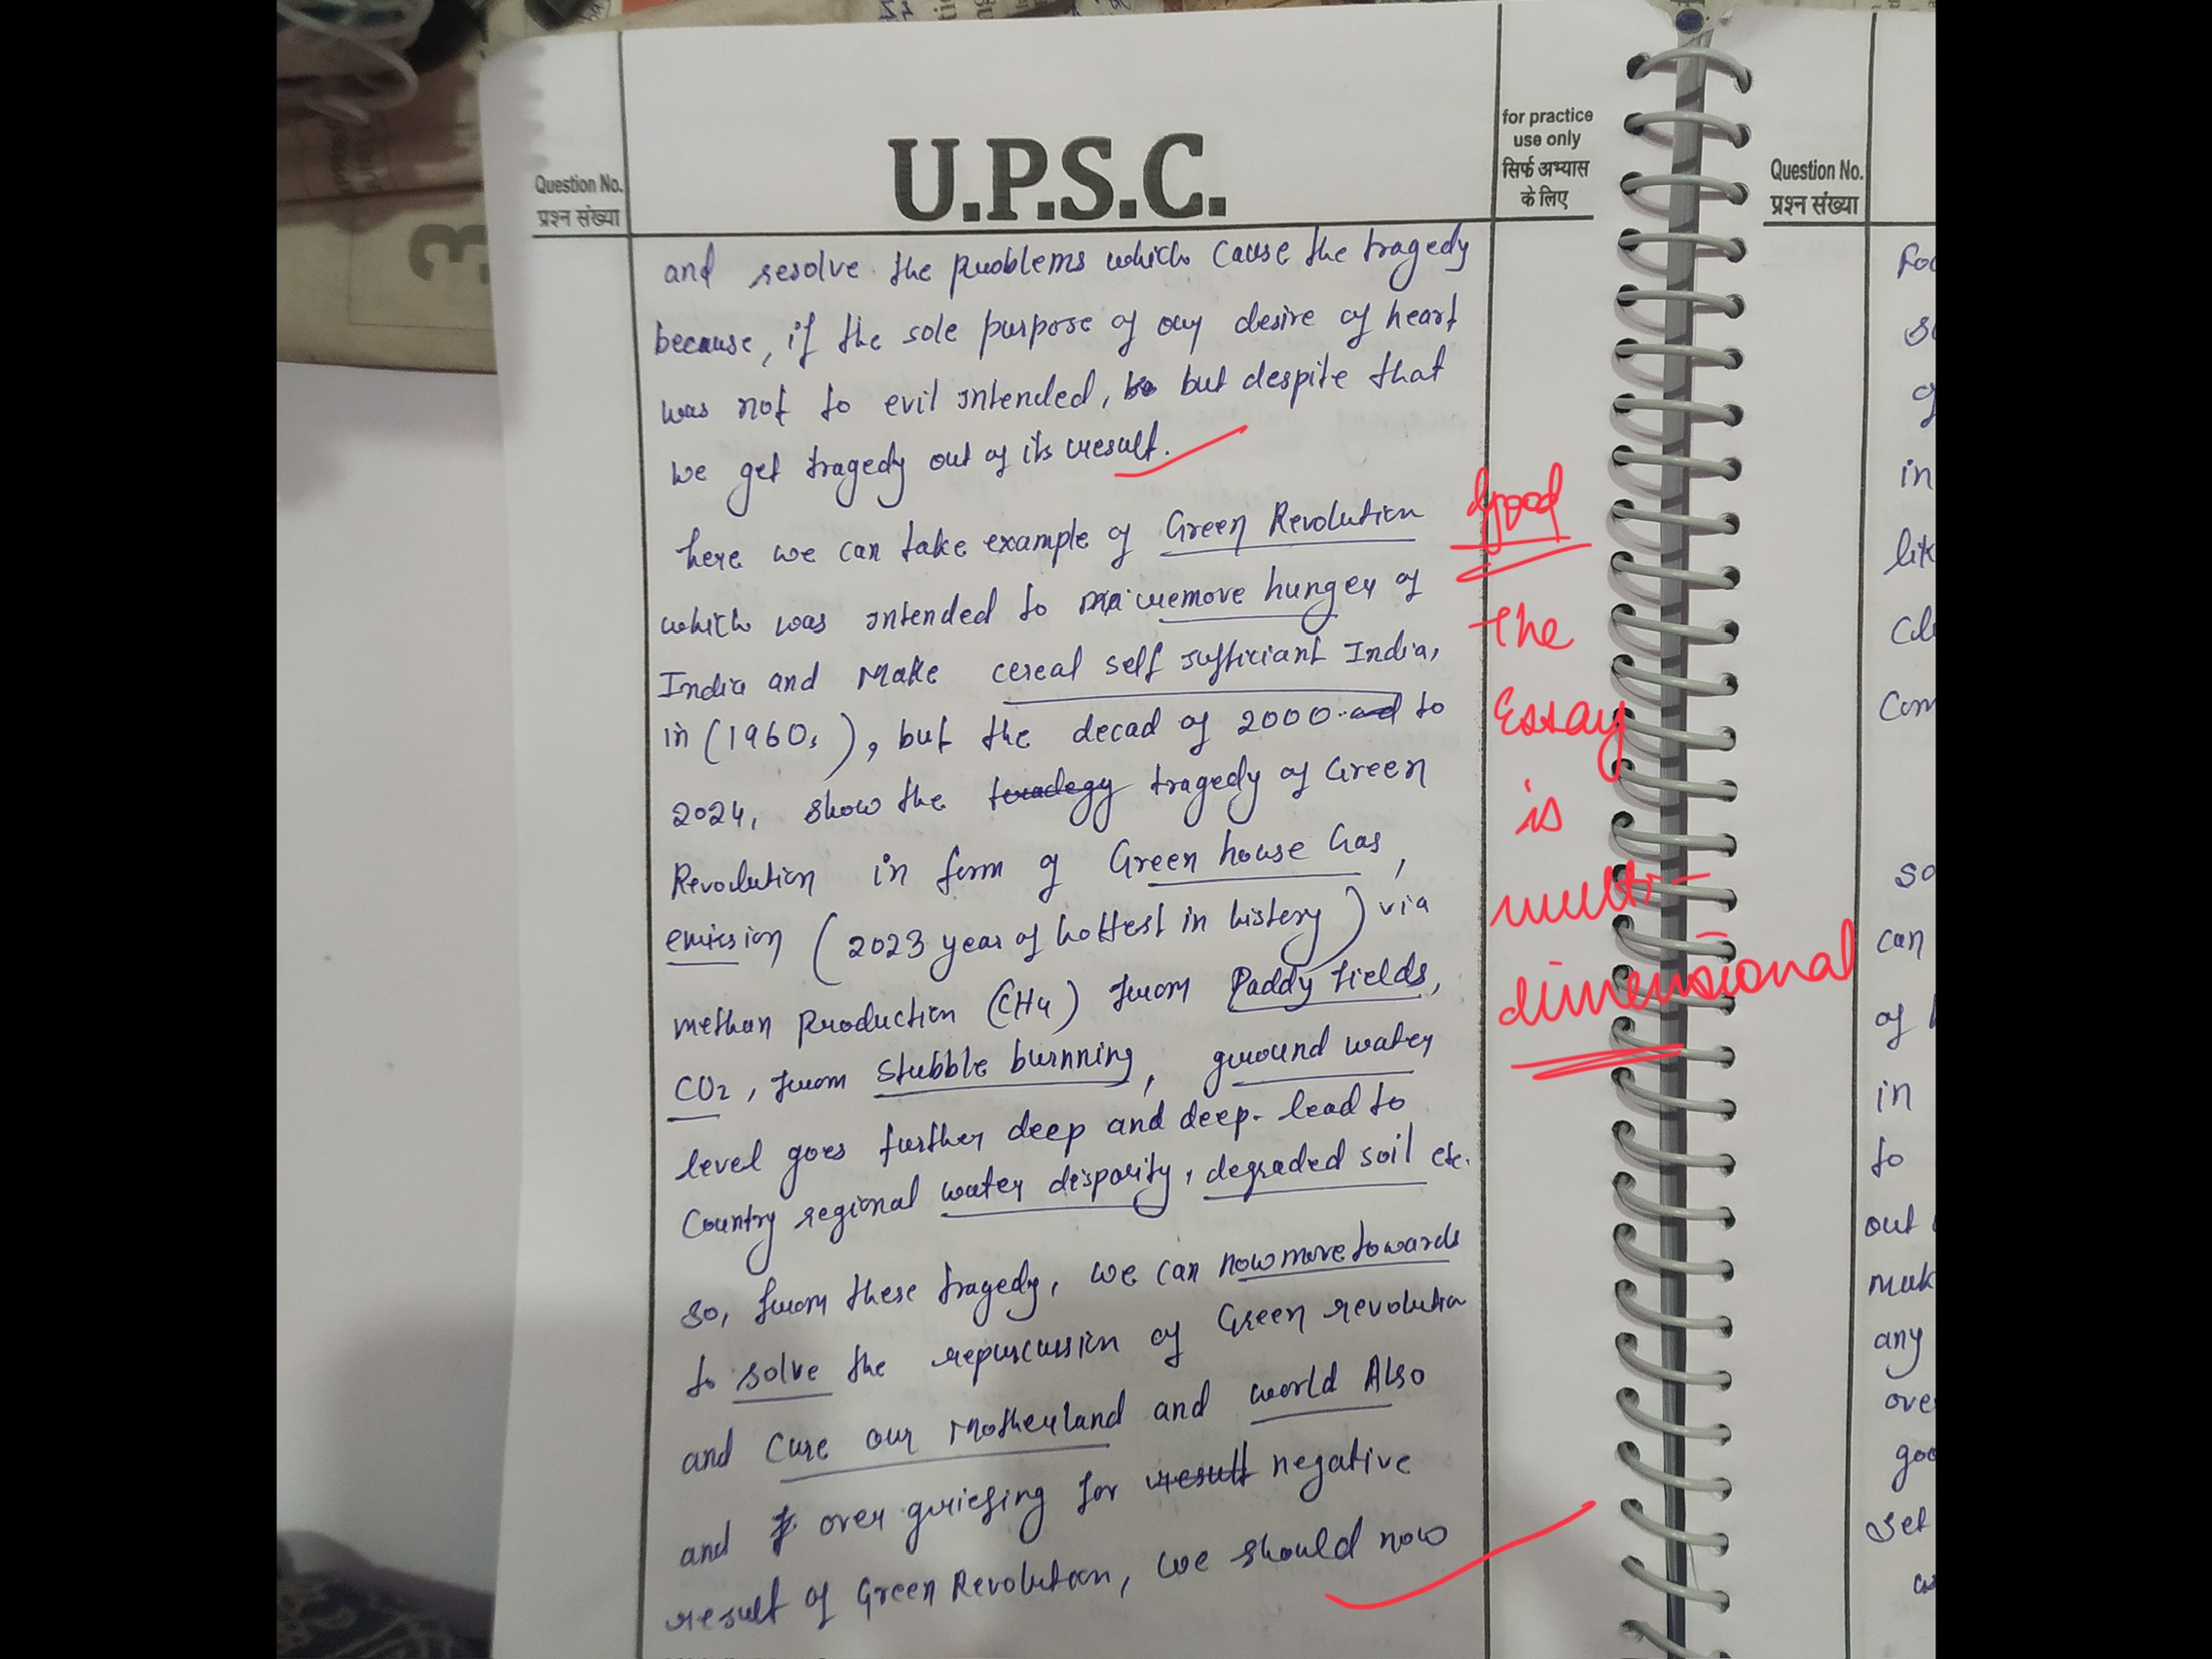 Question No.
प्रश्न संख्या
U.P.S.C.
for practice
use only
सिर्फ अभ्यास
के लिए
and resolve the problems which cause the tragedy
because, if the sole purpose of any desire of heart
was not to evil intended, but despite that
we get tragedy out of its result.
here we can take example of Green Revolution
which was intended to remove hunger of
India and Make cereal self sufficiant India,
in (1960s), but the decad of 2000 to
2024, show the tragedy of Green
Revolution in form of Green house Gas,
emission (2023 year of hottest in history) via
methan Production (CH4) from Paddy fields,
CO2, from stubble burnning, ground water
level goes further deep and deep. lead to
Country regional water disparity, degraded soil etc.
so, from these tragedy, we can now move towards
to solve the repurcussion of Green revolution
and Cure our Motherland and world Also
and over griefing for result negative
result of Green Revolution, we should now
Good
the
Essay
is
multi-
dimensional
Question No.
प्रश्न संख्या
in
can
of
in
to
out
any